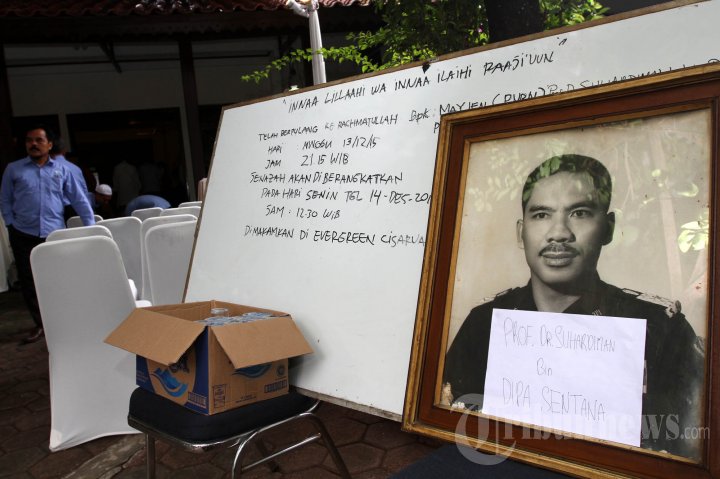 "INNAA LILLAAHI WA INNAA ILAIHI RAAJI'UUN"
TELAH BERPULANG KE RACHMATULLAH Bpk: MAYJEN (PURN) Prof. SUHARDIMAN
HARI MINGGU 13/12/15
JAM 21.15 WIB
JENAZAH AKAN DI BERANGKATKAN
PADA HARI SENIN TGL 14-DES-201
JAM : 12.30 WIB
DIMAKAMKAN DI EVERGREEN CISARUA
PROF. DR. SUHARDIMAN
Bin
DIPA SENTANA
Tribunnews.com